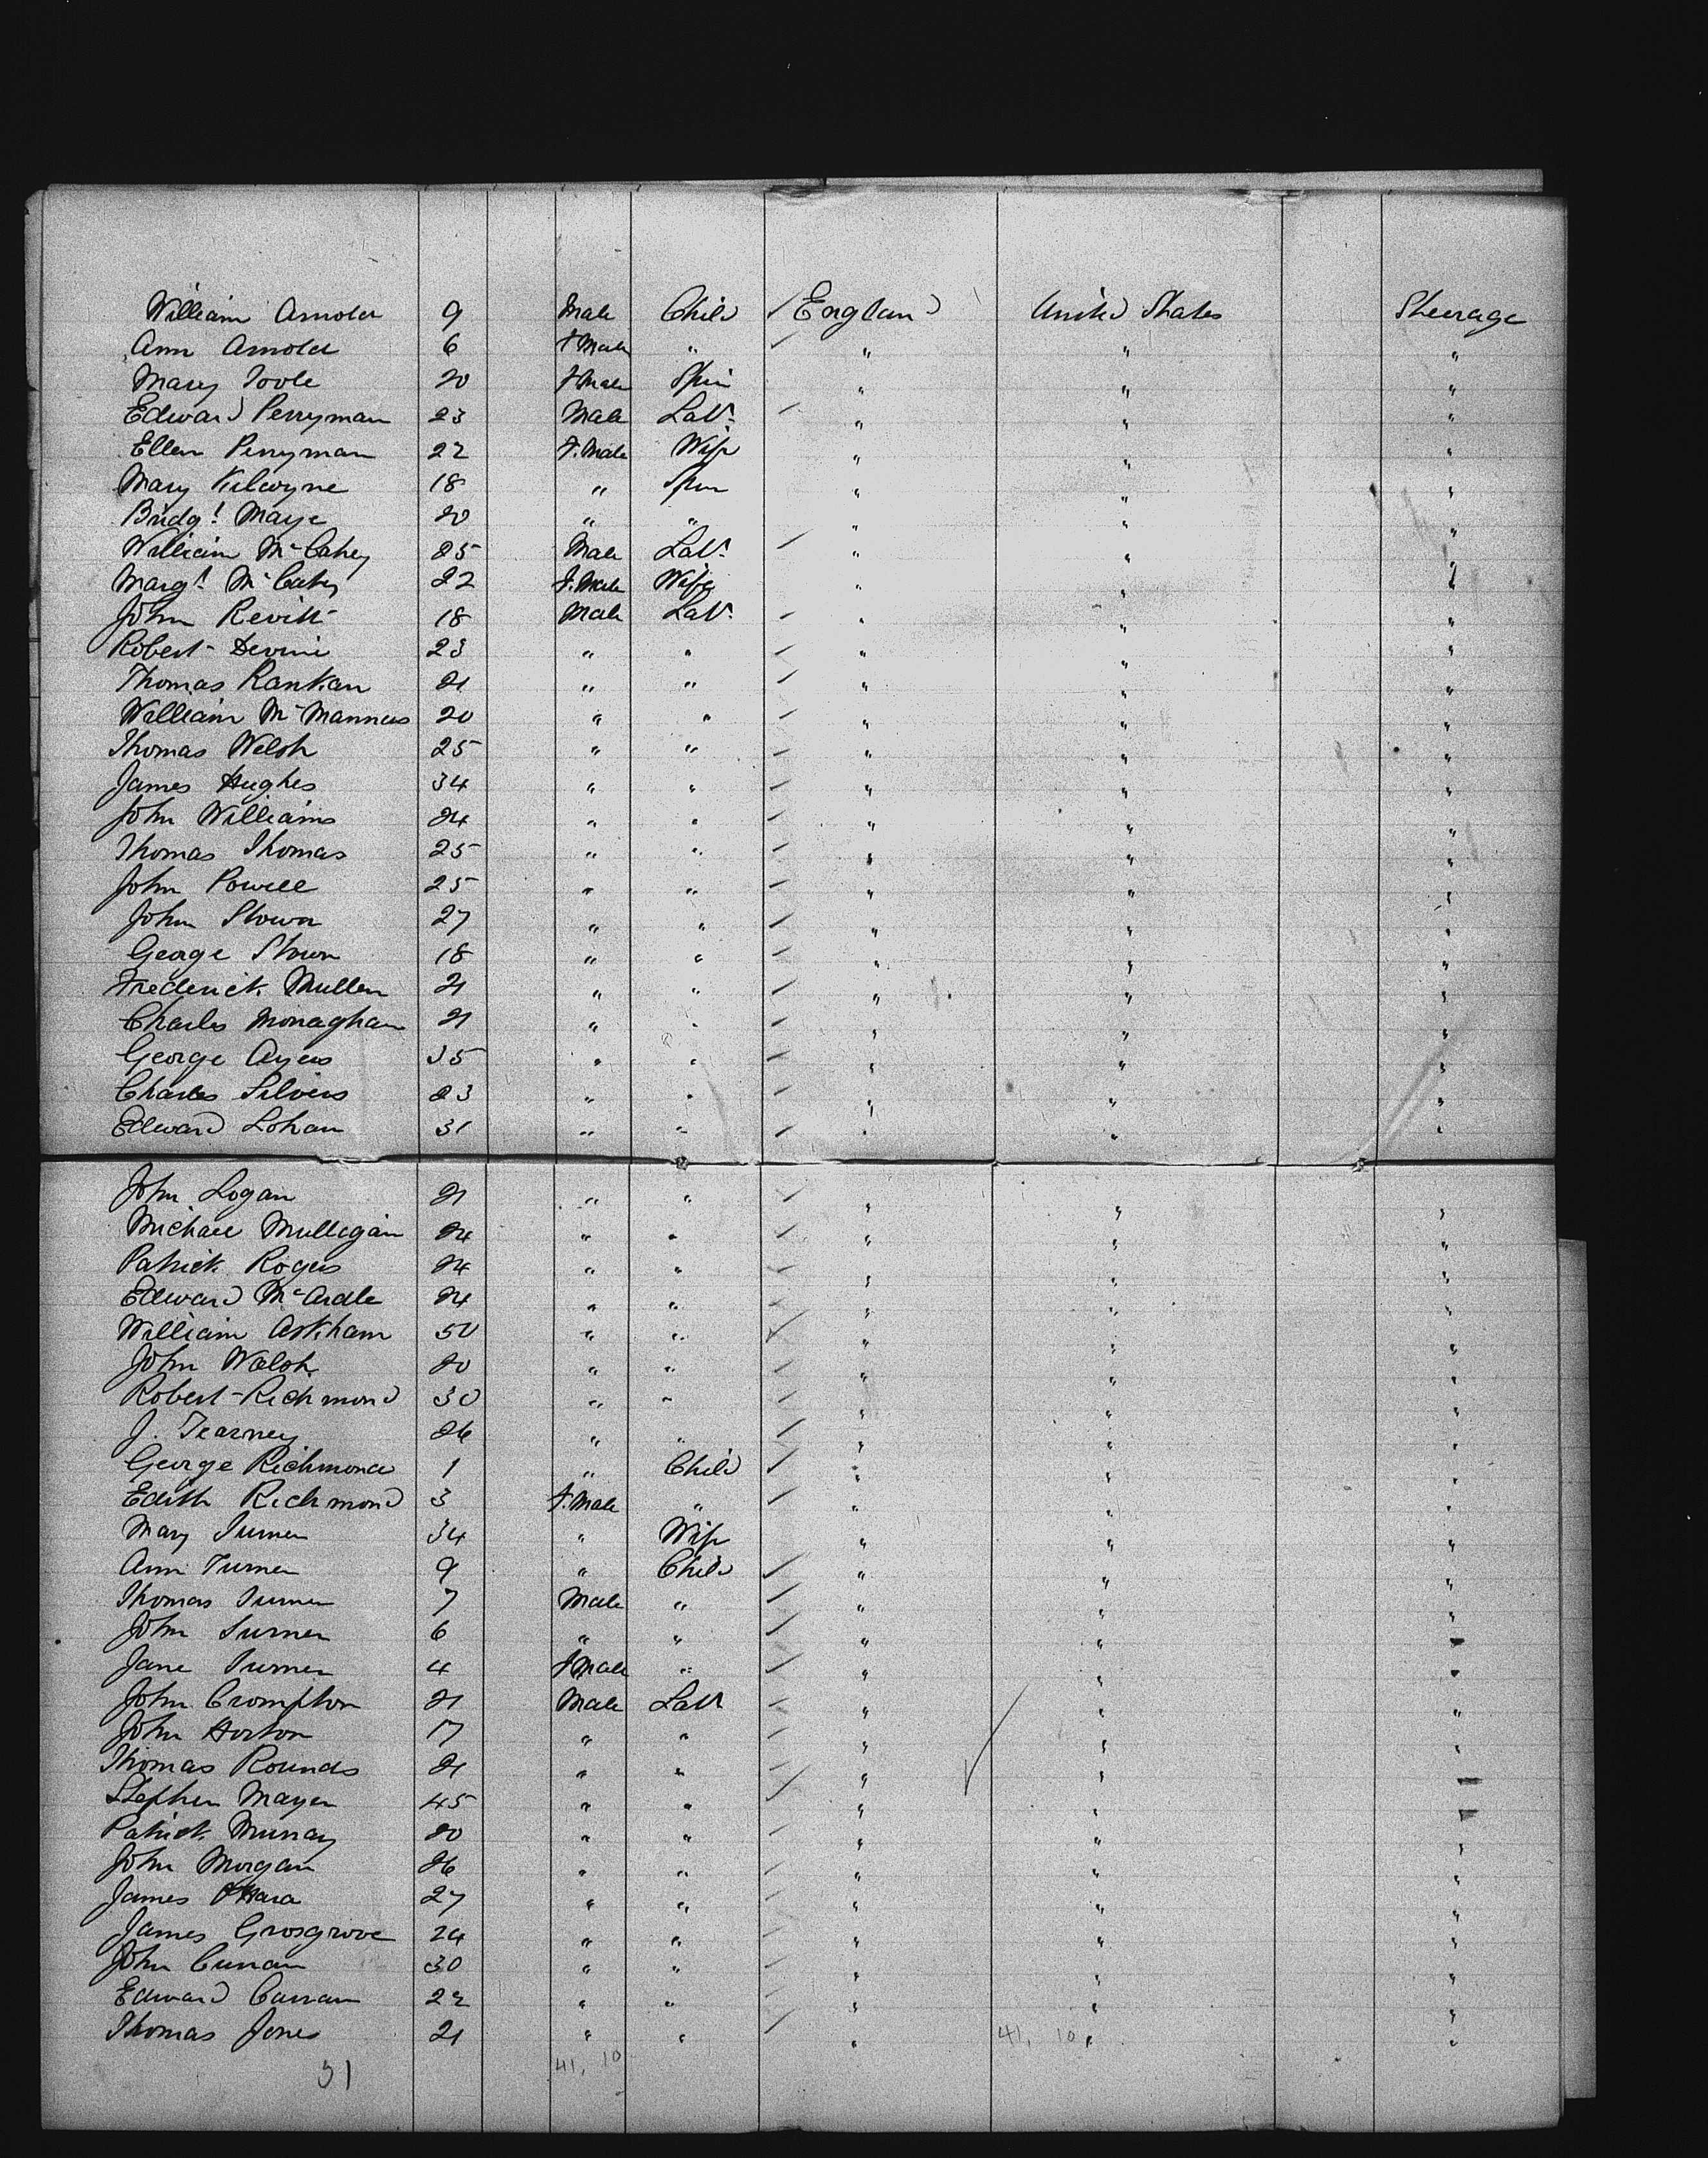 William Arnold 9 Male Child / England United States Steerage
Ann Arnold 6 F Male " / " " "
Mary Toole 20 F Male Spin " " "
Edward Perryman 23 Male Labr / " " "
Ellen Perryman 22 F. Male Wife " " "
Mary Kilcoyne 18 " Spin " " "
Bridgt Maye 20 " " " " "
William McCahey 25 Male Labr / " " "
Margt McCahey 22 F. Male Wife " " "
John Revitt 18 Male Labr / " " "
Robert Devine 23 " " / " " "
Thomas Rankan 21 " " / " " "
William McMannus 20 " " / " " "
Thomas Welsh 25 " " / " " "
James Hughes 34 " " / " " "
John Williams 24 " " / " " "
Thomas Thomas 25 " " / " " "
John Powell 25 " " / " " "
John 27 " " / " " "
George 18 " " / " " "
Frederick Mullen 21 " " / " " "
Charles Monaghan 21 " " / " " "
George Ayers 35 " " / " " "
Charles Silvers 23 " " / " " "
Edward Lohan 31 " " / " " "
John Logan 21 " " / " " "
Michael Mulligan 24 " " / " " "
Patrick Rogers 24 " " / " " "
Edward McArdle 24 " " / " " "
William Askham 50 " " / " " "
John Walsh 20 " " / " " "
Robert Richmond 30 " " / " " "
J. Tearney 26 " " / " " "
George Richmond 1 " Child / " " "
Edith Richmond 3 F. Male " / " " "
Mary Turner 34 " Wife " " "
Ann Turner 9 " Child / " " "
Thomas Turner 7 Male " / " " "
John Turner 6 " " / " " "
Jane Turner 4 F Male " / " " "
John Crompton 21 Male Labr / " " "
John Horton 17 " " / " " "
Thomas Rounds 21 " " / " " "
Stephen Mayer 45 " " / " " "
Patrick Murray 20 " " / " " "
John Morgan 26 " " / " " "
James OHara 27 " " / " " "
James Grosgrove 24 " " / " " "
John Curran 30 " " / " " "
Edward Curran 22 " " / " " "
Thomas Jones 21 " " / " 41, 10 " "
51 41, 10